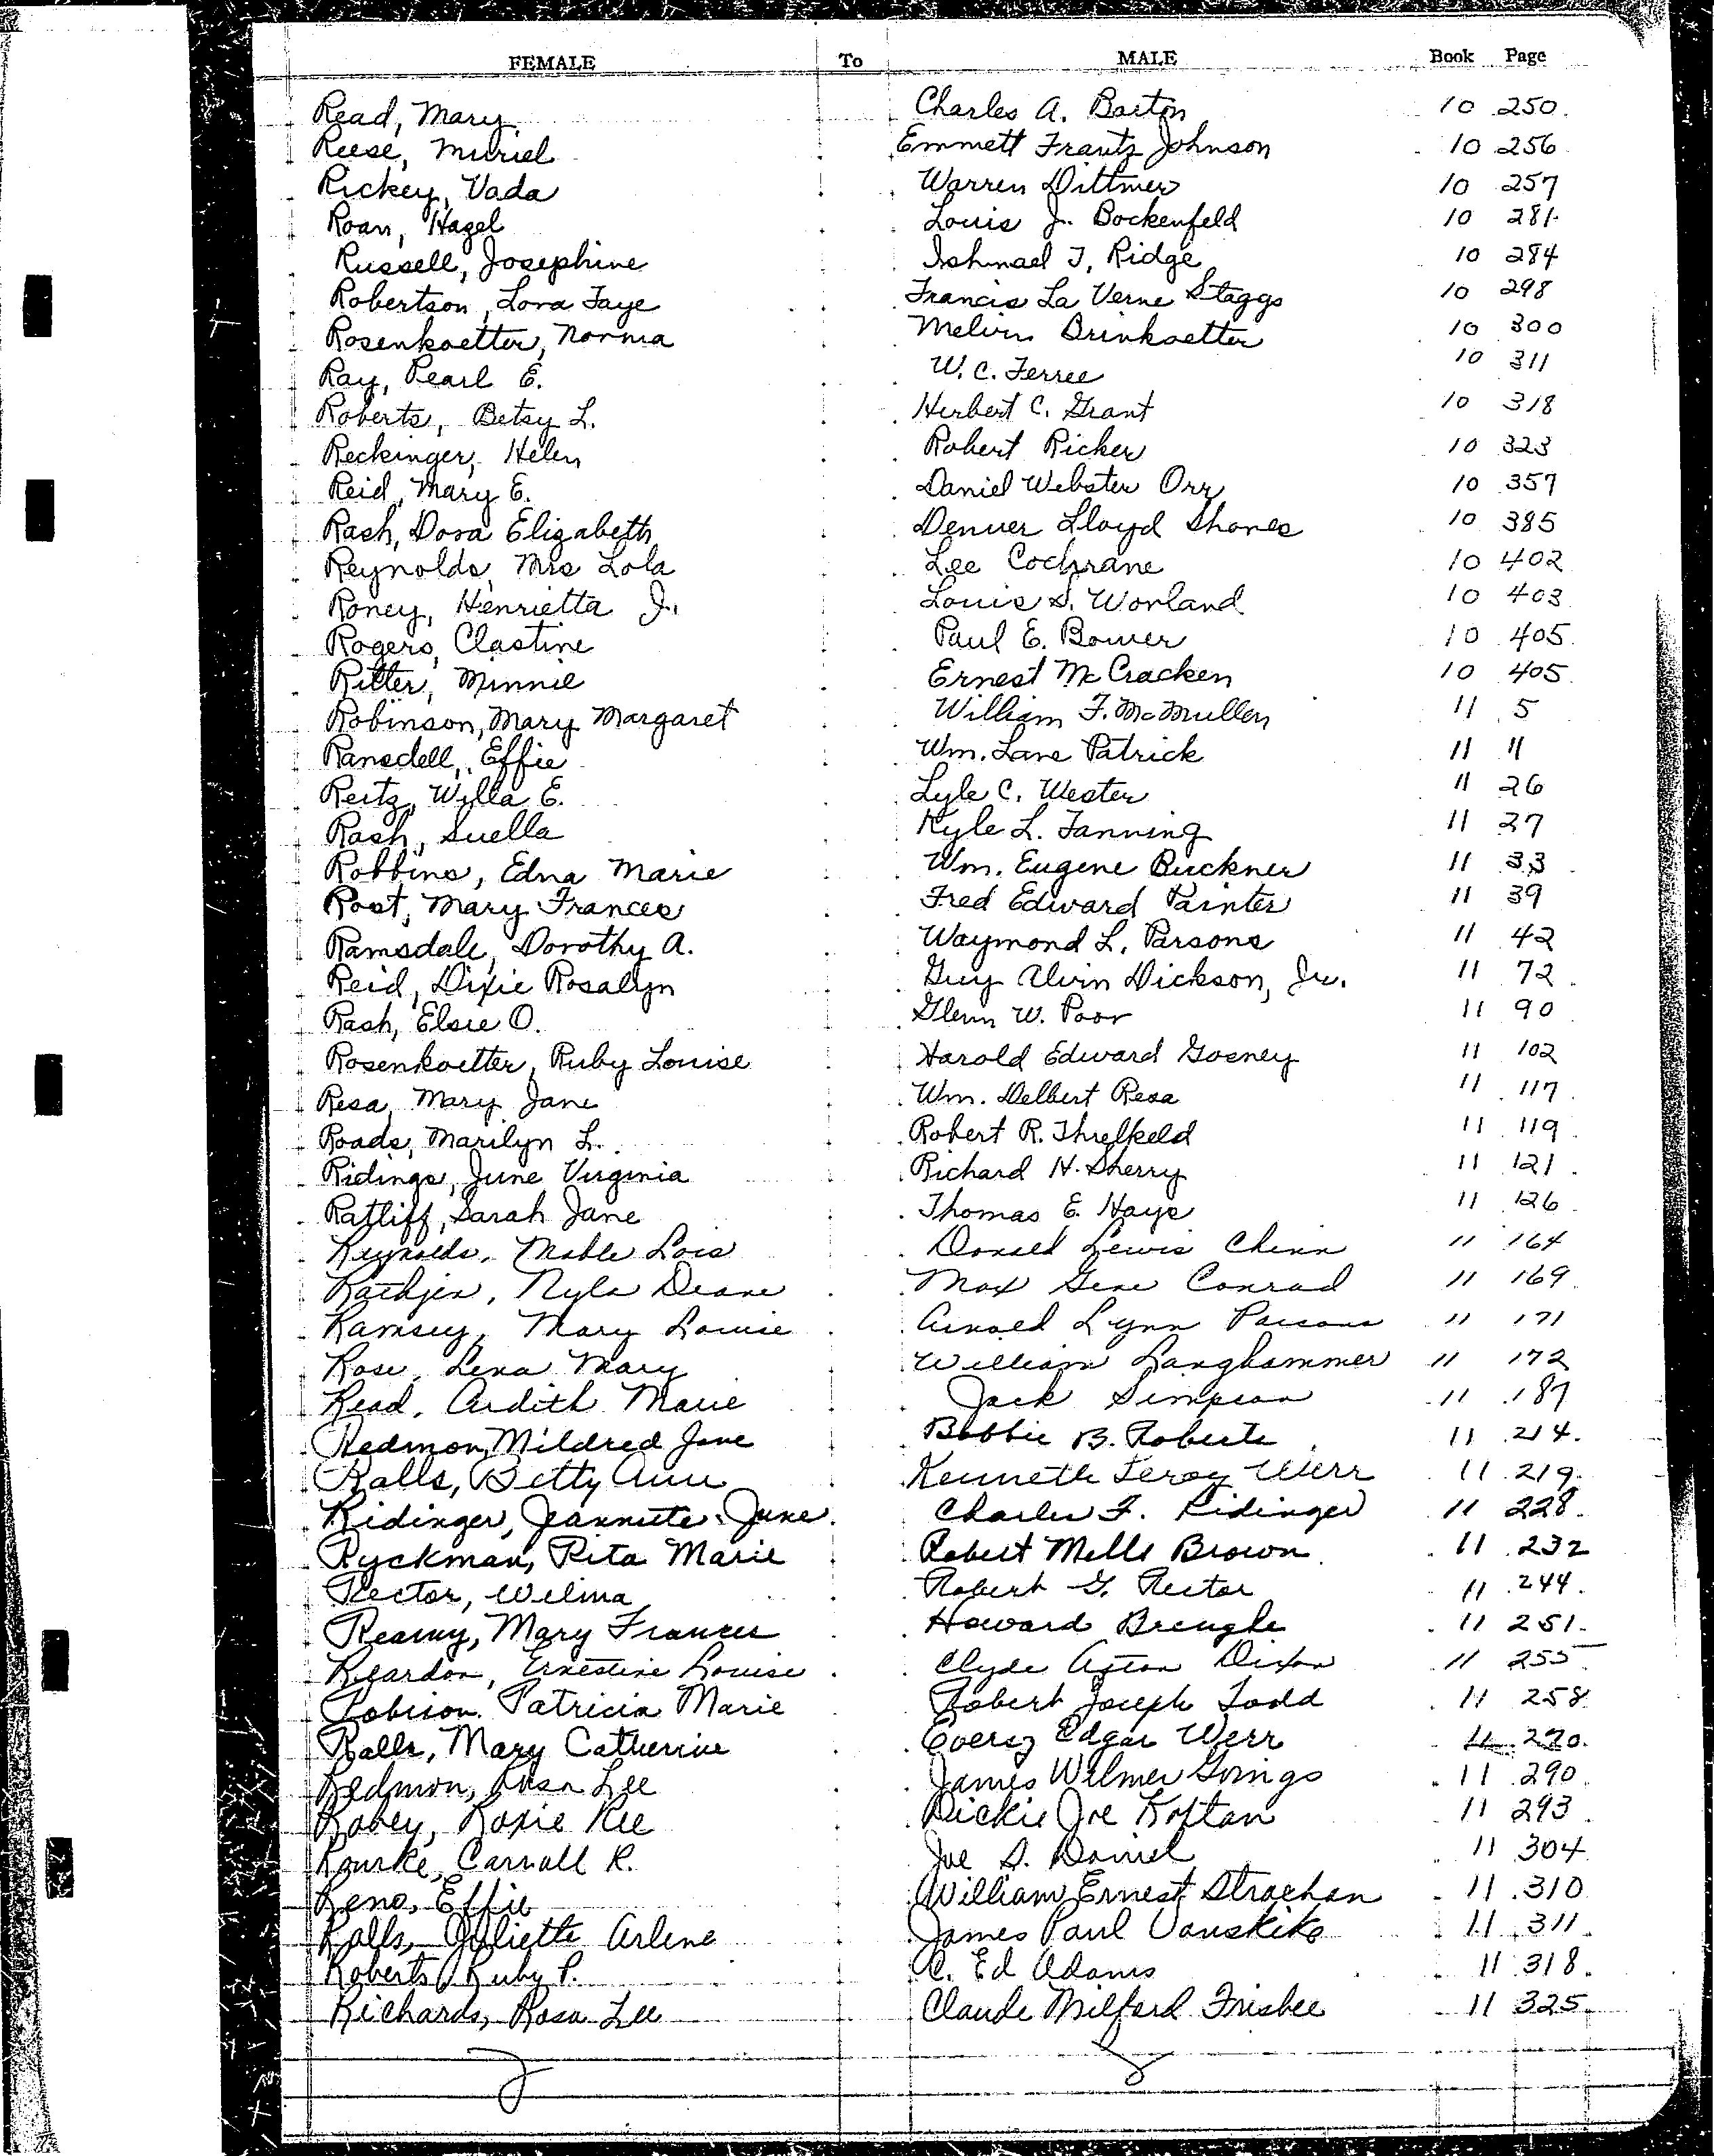 FEMALE To MALE Book Page
Read, Mary Charles A. Barton 10 250
Reese, Muriel Emmett Frantz Johnson 10 256
Rickey, Vada Warren Dittmer 10 257
Roan, Hazel Louis J. Bockenfeld 10 281
Russell, Josephine Ishmael T. Ridge 10 284
Robertson, Lora Faye Francis La Verne Staggs 10 298
Rosenkoetter, Norma Melvin Brinkoetter 10 300
Ray, Pearl E. W. C. Ferree 10 311
Roberts, Betsy L. Herbert C. Grant 10 318
Reckinger, Helen Robert Ricker 10 323
Reid, Mary E. Daniel Webster Orr 10 357
Rash, Dora Elizabeth Denver Lloyd Shores 10 385
Reynolds, Mrs Lola Lee Cochrane 10 402
Roney, Henrietta J. Louis S. Worland 10 403
Rogers, Clastine Paul E. Bower 10 405
Ritter, Minnie Ernest McCracken 10 405
Robinson, Mary Margaret William F. McMullen 11 5
Ransdell, Effie Wm. Lane Patrick 11 11
Reitz, Willa E. Lyle C. Wester 11 26
Rash, Suella Kyle L. Fanning 11 27
Robbins, Edna Marie Wm. Eugene Buckner 11 33
Rost, Mary Frances Fred Edward Painter 11 39
Ramsdale, Dorothy A. Waymond L. Parsons 11 42
Reid, Dixie Rosalyn Guy Alvin Dickson, Jr. 11 72
Rash, Elsie O. Glenn W. Poor 11 90
Rosenkoetter, Ruby Louise Harold Edward Gosney 11 102
Resa, Mary Jane Wm. Delbert Resa 11 117
Roads, Marilyn L. Robert R. Threlkeld 11 119
Ridings, June Virginia Richard H. Sherry 11 121
Ratliff, Sarah Jane Thomas E. Hays 11 126
Reynolds, Mable Lois Donald Lewis Chinn 11 164
Rathjen, Nyla Deane Max Gene Conrad 11 169
Ramsey, Mary Louise Arnold Lynn Parsons 11 171
Rose, Lena Mary William Langhammer 11 172
Read, Ardith Marie Jack Simpson 11 187
Redmon, Mildred Jane Bobbie B. Roberts 11 214
Ralls, Betty Ann Kenneth Leroy Werr 11 219
Ridinger, Jeannete June Charles F. Ridinger 11 228
Ryckman, Rita Marie Robert Mells Brown 11 232
Rector, Wilma Robert G. Rector 11 244
Reamy, Mary Frances Howard Breugle 11 251
Reardon, Ernestine Louise Clyde Aston Dixon 11 255
Robison Patricia Marie Robert Joseph Todd 11 258
Ralls, Mary Catherine Edgar Werr 11 270
Redmon, Rosa Lee James Wilmer Goings 11 290
Robey, Roxie Kee Dickie Joe Koftan 11 293
Rourke, Carroll R. Joe S. Daniel 11 304
Reno, Effie William Ernest Strachan 11 310
Ralls, Juliette Arlene James Paul Vanskike 11 311
Roberts, Ruby P. C. Ed Adams 11 318
Richards, Rosa Lee Claude Milford Frisbee 11 325